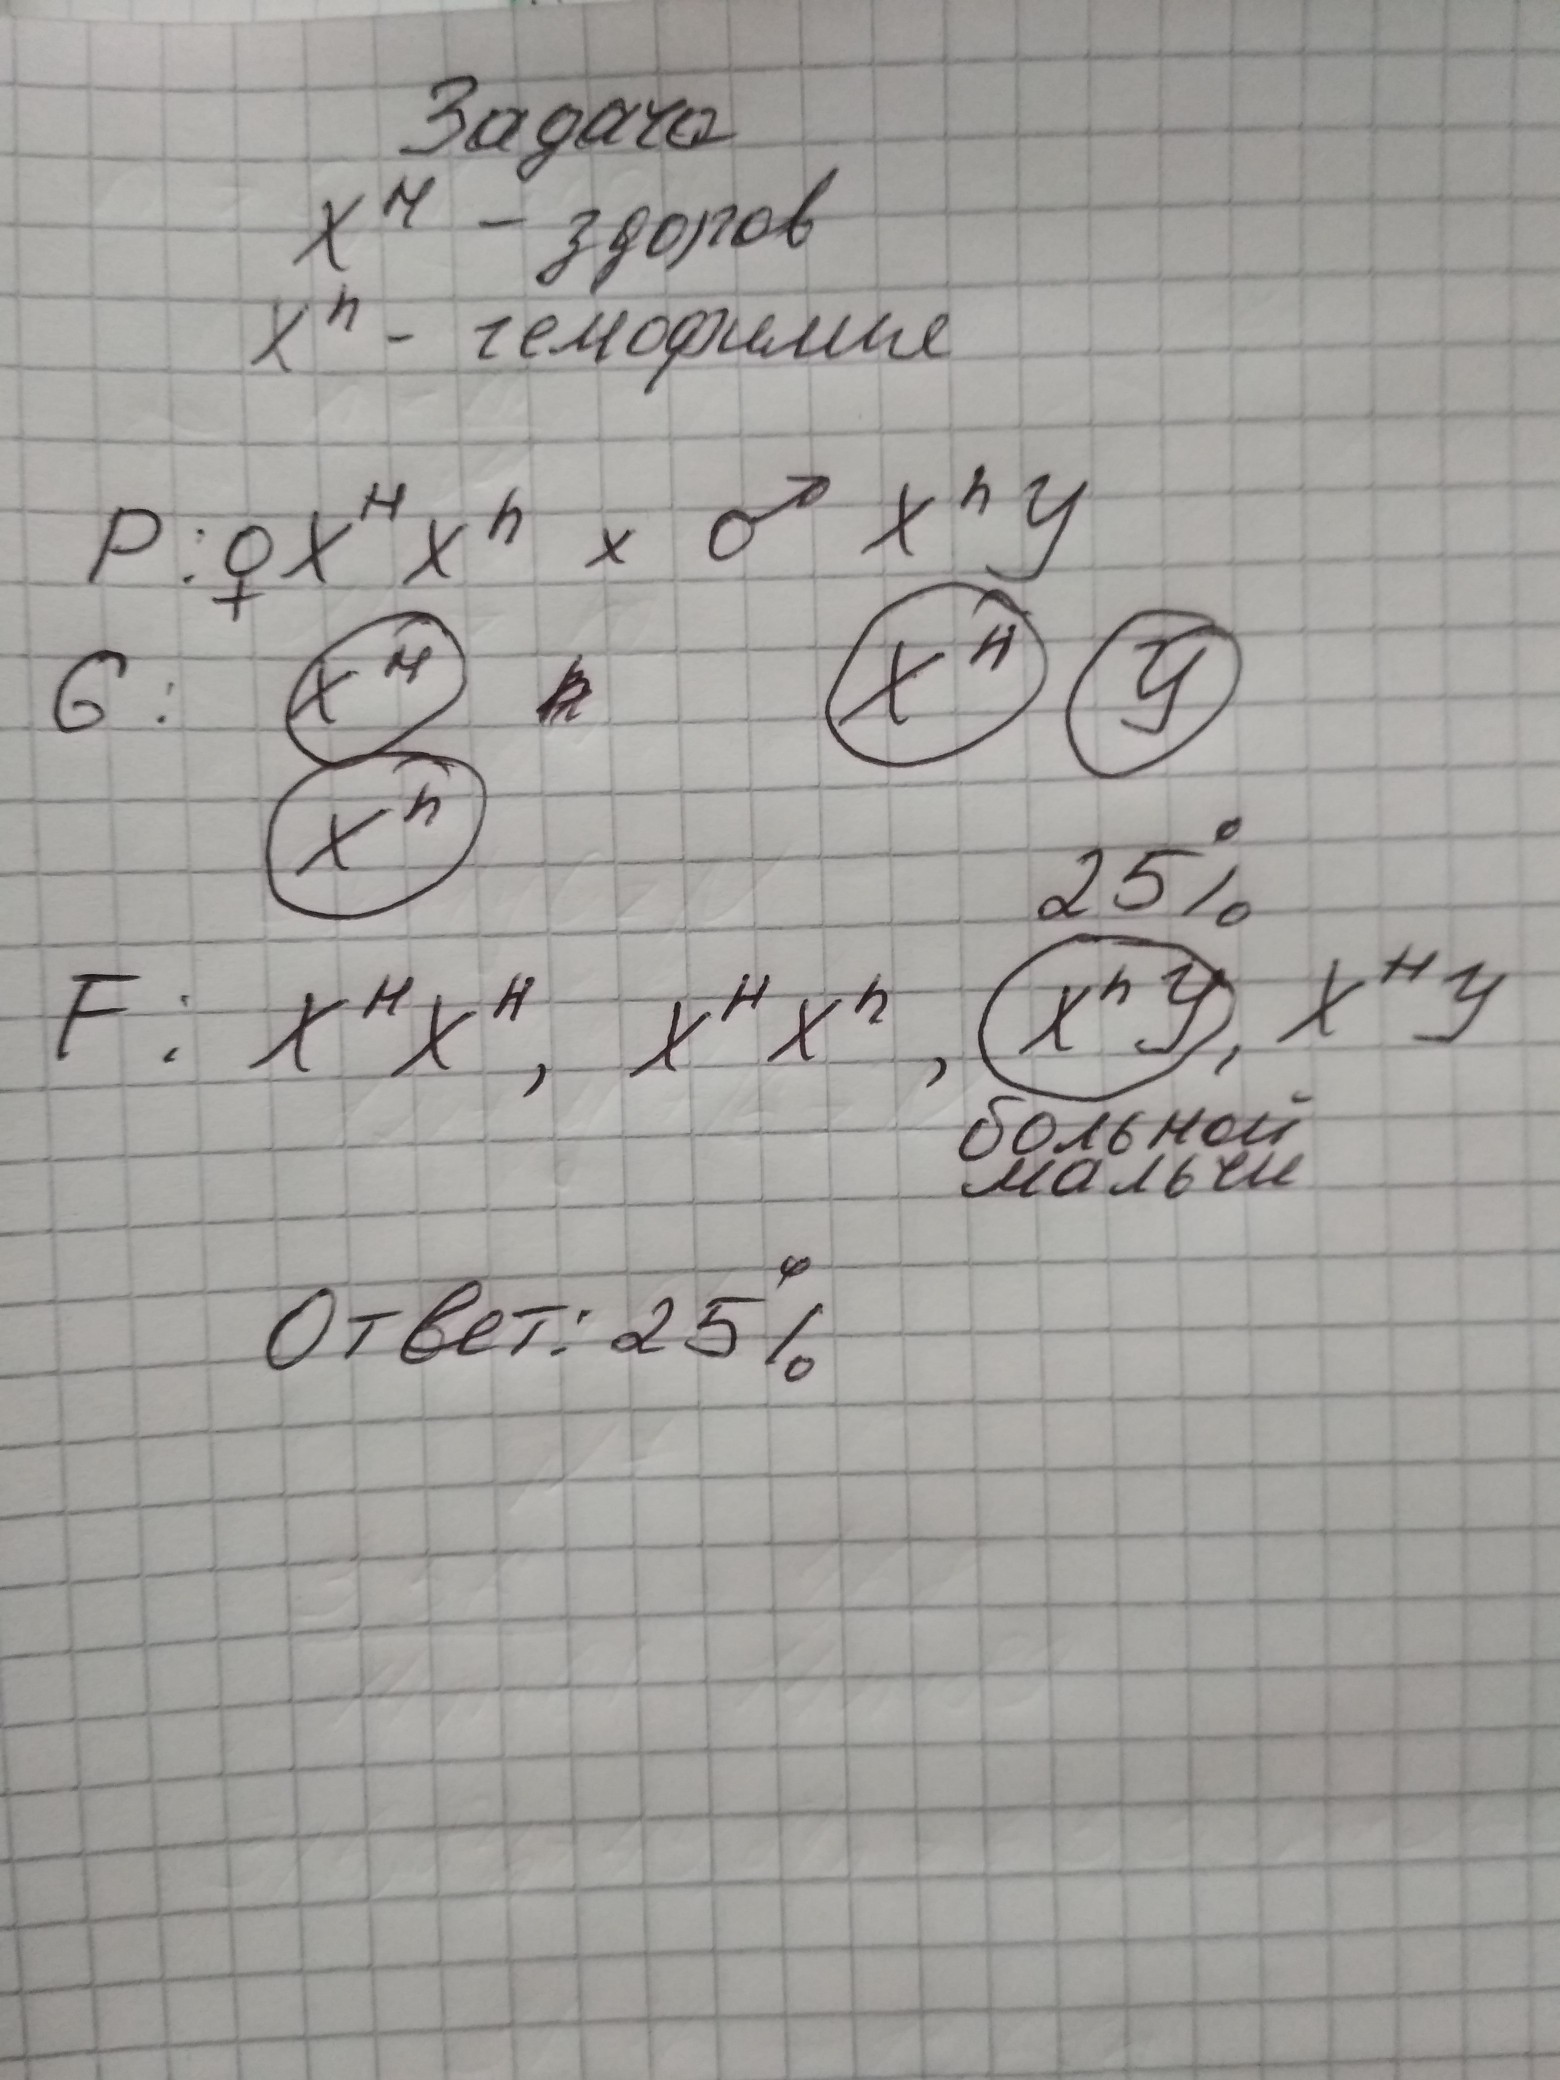 Задача
X^H - здоров
X^h - гемофилия
P: ♀ X^H X^h x ♂ X^h Y
G: X^H X^H Y
X^h
25%
F: X^H X^H, X^H X^h, X^h Y, X^H Y
больной
мальчи
Ответ: 25%